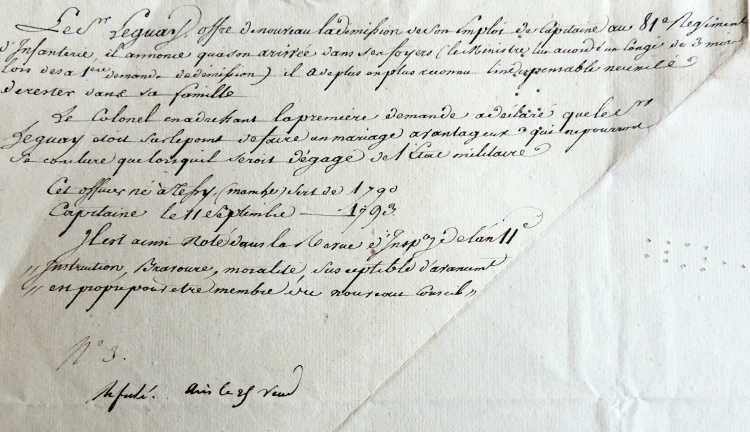 Le Sr. Leguay, offre de nouveau la démission de son Emploi de Capitaine au 81e Régiment
d'Infanterie, il annonce qu'a son arrivée dans ses foyers (le Ministre lui avoit d' un Congé de 3 mois
lors de sa 1ère demande de démission) il a de plus en plus reconnu l'indispensable necessité
de rester dans sa famille
Le Colonel en adressant la premiere demande a déclaré que le Sr.
Leguay étoit sur le point de faire un mariage avantageux qui ne pourroit
se conclure que lorsqu'il seroit dégagé de l'Etat militaire
Cet officier né à Tessy, (manche) sert de 1790
Capitaine le 11 Septembre — 1793
Il est ainsi noté dans la Revue d'Insp.on de l'an 11e
,, Instruction, Bravoure, moralité, susceptible d'avancemt
,, est propre pour être membre du nouveau Conseil ,,
No. 3.
Refusé. le 25 Vend